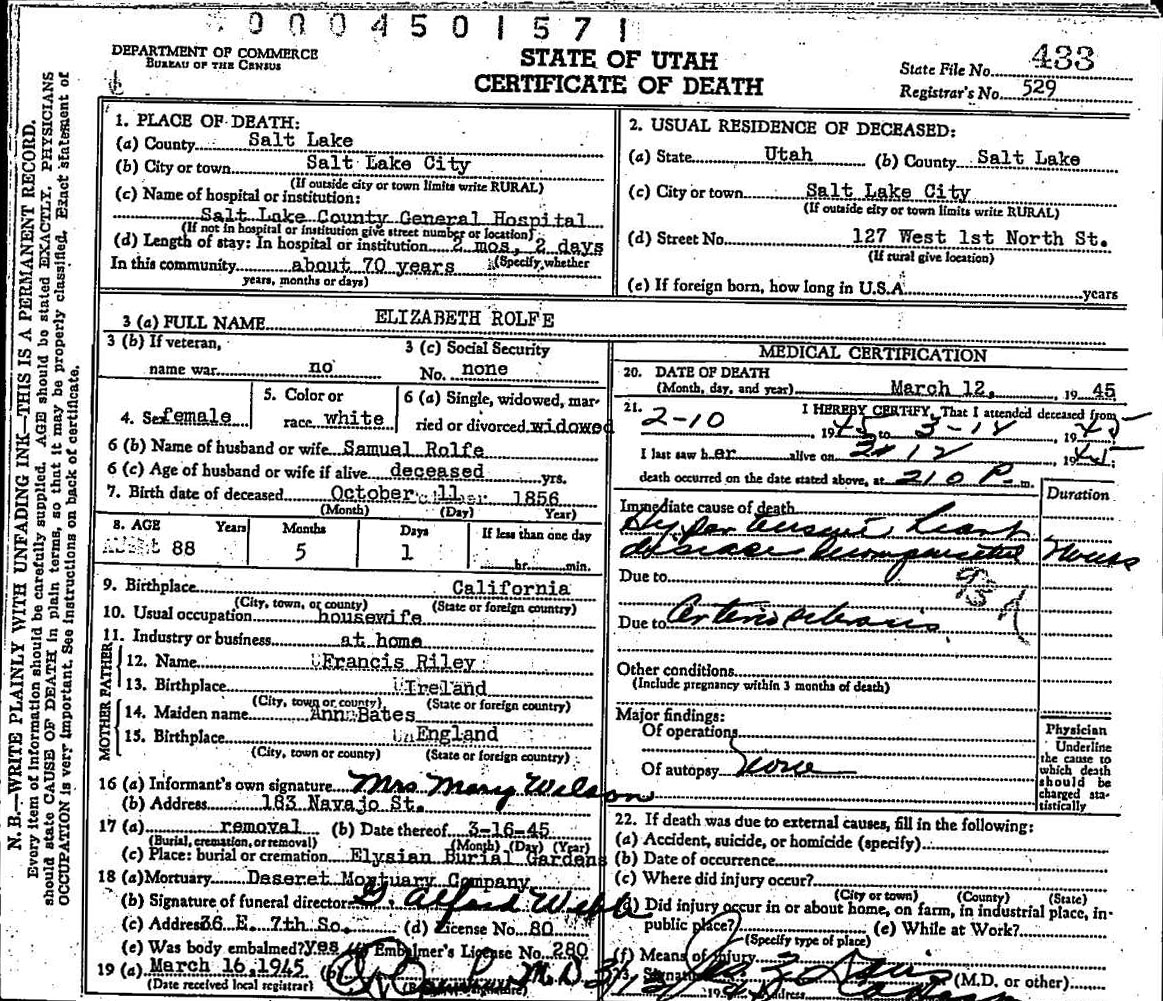 0004501571
DEPARTMENT OF COMMERCE
BUREAU OF THE CENSUS
STATE OF UTAH
CERTIFICATE OF DEATH
State File No. 433
Registrar's No. 529
N. B.—WRITE PLAINLY WITH UNFADING INK—THIS IS A PERMANENT RECORD.
Every item of information should be carefully supplied. AGE should be stated EXACTLY. PHYSICIANS
should state CAUSE OF DEATH in plain terms, so that it may be properly classified. Exact statement of
OCCUPATION is very important. See instructions on back of certificate.
1. PLACE OF DEATH:
(a) County Salt Lake
(b) City or town Salt Lake City
(If outside city or town limits write RURAL)
(c) Name of hospital or institution:
Salt Lake County General Hospital
(If not in hospital or institution give street number or location)
(d) Length of stay: In hospital or institution 2 mos, 2 days
(Specify whether
In this community about 70 years
years, months or days)
2. USUAL RESIDENCE OF DECEASED:
(a) State Utah (b) County Salt Lake
(c) City or town Salt Lake City
(If outside city or town limits write RURAL)
(d) Street No. 127 West 1st North St.
(If rural give location)
(e) If foreign born, how long in U.S.A. years
3 (a) FULL NAME ELIZABETH ROLFE
3 (b) If veteran,
name war no
3 (c) Social Security
No. none
4. Sex female
5. Color or
race white
6 (a) Single, widowed, mar-
ried or divorced widowed
6 (b) Name of husband or wife Samuel Rolfe
6 (c) Age of husband or wife if alive deceased yrs.
7. Birth date of deceased October 11 1856
(Month) (Day) Year)
8. AGE Years Months Days If less than one day
88 5 1 hr. min.
9. Birthplace California
(City, town, or county) (State or foreign country)
10. Usual occupation housewife
11. Industry or business at home
FATHER
12. Name Francis Riley
13. Birthplace Ireland
(City, town or county) (State or foreign country)
MOTHER
14. Maiden name Ann Bates
15. Birthplace England
(City, town or county) (State or foreign country)
16 (a) Informant's own signature Mrs Mary Wilson
(b) Address 183 Navajo St.
17 (a) removal (b) Date thereof 3-16-45
(Burial, cremation, or removal) (Month) (Day) (Year)
(c) Place: burial or cremation Elysian Burial Gardens
18 (a) Mortuary Deseret Mortuary Company
(b) Signature of funeral director G. Alford Webb
(c) Address 36 E. 7th So. (d) License No. 80
(e) Was body embalmed? yes Embalmer's License No. 280
19 (a) March 16, 1945 (b) M.D.
(Date received local registrar)
MEDICAL CERTIFICATION
20. DATE OF DEATH
(Month, day, and year) March 12, 19 45
21. I HEREBY CERTIFY, That I attended deceased from
2-10, 1945 to 3-14, 1945
I last saw her alive on 12 1945
death occurred on the date stated above, at 210 P. m.
Duration
Immediate cause of death
Hypertensive heart
disease decompensated
Due to
Due to Arteriosclerosis
Other conditions
(Include pregnancy within 3 months of death)
Major findings:
Of operations
Of autopsy None
Physician
Underline
the cause to
which death
should be
charged sta-
tistically
22. If death was due to external causes, fill in the following:
(a) Accident, suicide, or homicide (specify)
(b) Date of occurrence
(c) Where did injury occur?
(City or town) (County) (State)
(d) Did injury occur in or about home, on farm, in industrial place, in-
public place? (e) While at Work?
(Specify type of place)
(f) Means of injury
23. Signature (M.D. or other)
Address